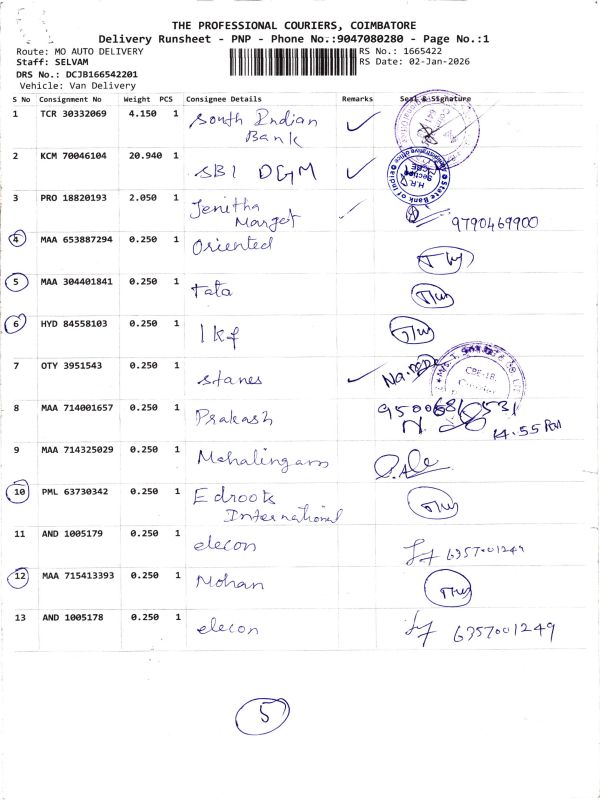 THE PROFESSIONAL COURIERS, COIMBATORE
Delivery Runsheet - PNP - Phone No.:9047080280 - Page No.:1
Route: MO AUTO DELIVERY RS No.: 1665422
Staff: SELVAM RS Date: 02-Jan-2026
DRS No.: DCJB166542201
Vehicle: Van Delivery
S No Consignment No Weight PCS Consignee Details Remarks Seal & Signature
1 TCR 30332069 4.150 1 South Indian
Bank
2 KCM 70046104 20.940 1 SBI DGM
State Bank of India
H.R.
Section
CBE
3 PRO 18820193 2.050 1 Jenitha
Marget 9790469900
4 MAA 653887294 0.250 1 Oriented
5 MAA 304401841 0.250 1 Tata
6 HYD 84558103 0.250 1 Ikf
7 OTY 3951543 0.250 1 Stanes
CBE-18.
8 MAA 714001657 0.250 1 Prakash
14.55
9 MAA 714325029 0.250 1 Mahalingam
10 PML 63730342 0.250 1 Edroots
International
11 AND 1005179 0.250 1 elecon 6357001249
12 MAA 715413393 0.250 1 Mohan
13 AND 1005178 0.250 1 elecon 6357001249
5